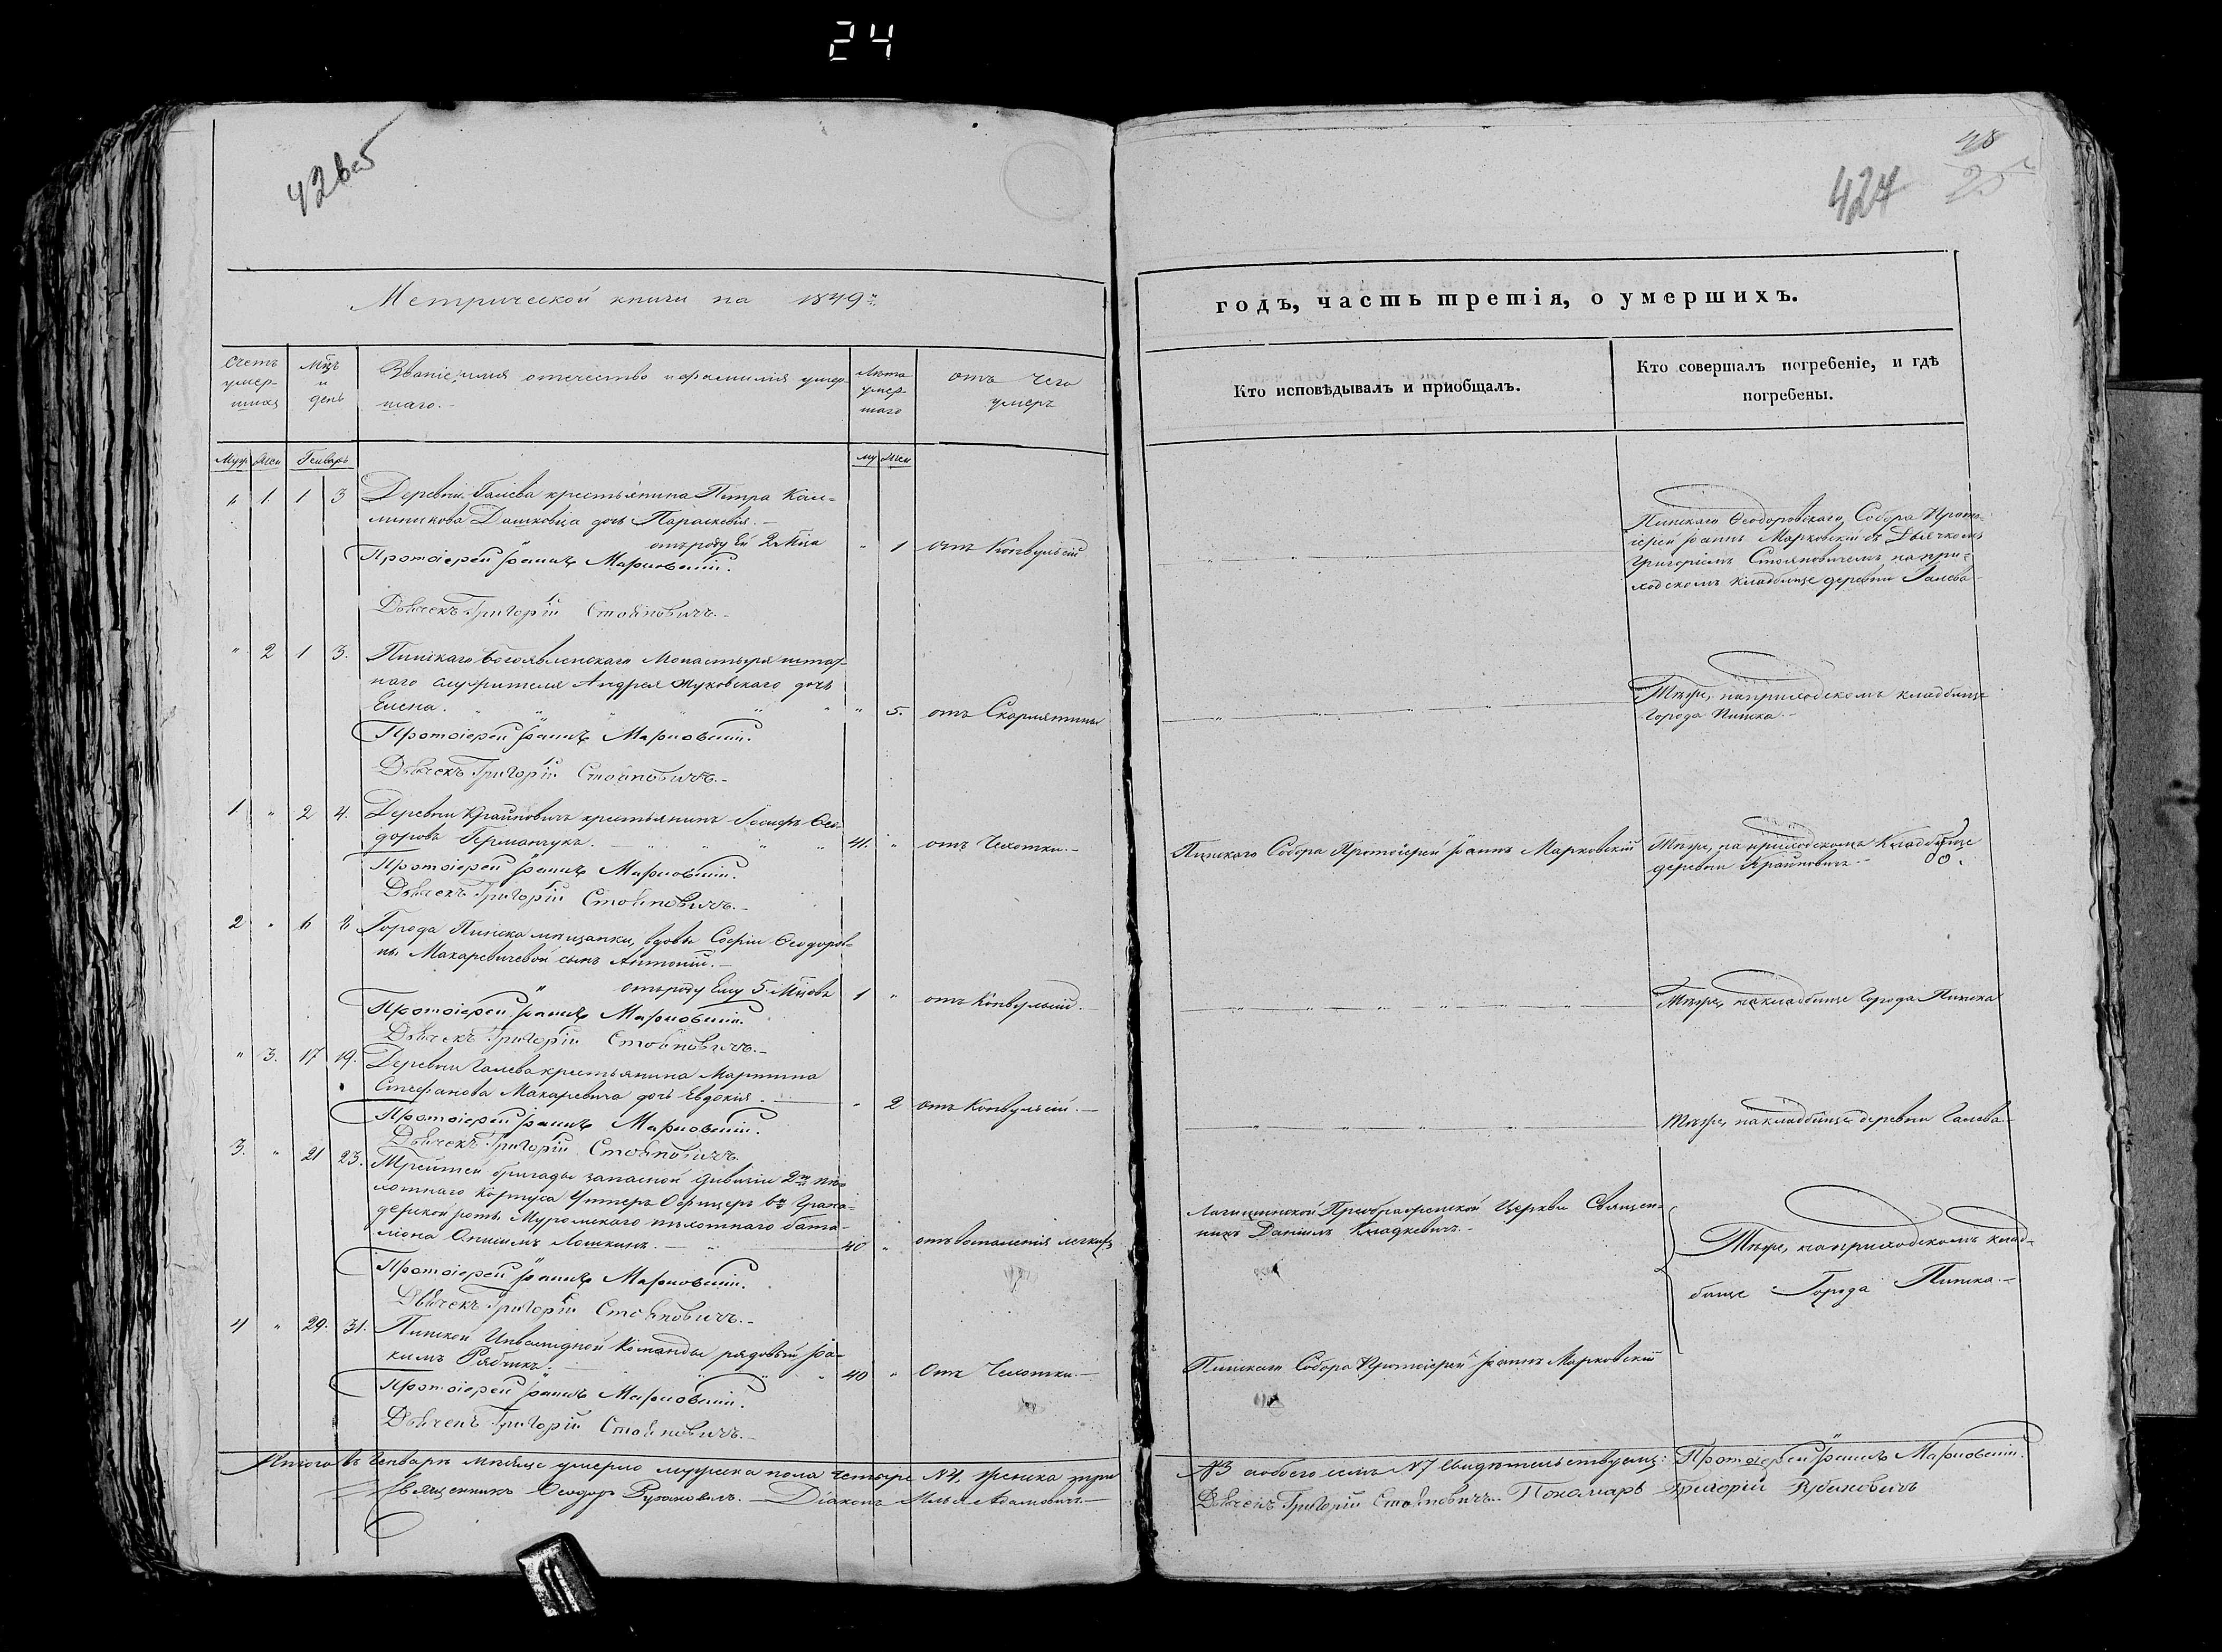 24
426об
424
48
25
Метрической книги на 1849й
годъ, часть третія, о умершихъ.
Счетъ умер-шихъ
Мцъ и день
Званіе, имя отечество и фамилія умер-
шаго.-
Лѣта умер-шаго
отъ чего
умеръ
Кто исповѣдывалъ и пріобщалъ.
Кто совершалъ погребеніе, и гдѣ
погребены.
Муж Жен Генварь му жен
1. 1 3 Деревни Галева крестьянина Петра Кали-
линикова Дашковца дочь Параскевія.-
отъ роду Ей 2 Мца " 1 отъ Конвульсій
Протоіерей Іоаннъ Марковскій.
Дьячекъ Григорій Стояновичъ.-
Пинскаго Ѳеодоровскаго Собора Прото-
іерей Іоаннъ Марковскій съ Дьячкомъ
Григоріемъ Стояновичемъ на при-
ходскомъ кладбище деревни Галева
" 2 1 3. Пинскаго Богоявленскаго Монастыря штат-
наго служителя Андрея Жуковскаго дочь
Елена. " 5. отъ Скарлятины
Протоіерей Іоаннъ Марковскій.
Дьячекъ Григорій Стояновичъ.-
Тѣже, на приходскомъ кладбище
города Пинска.-
1 " 2 4. Деревни Крайновичъ крестьянинъ Іосифъ Ѳео-
доровъ Германчукъ. 41. " отъ Чахотки.-
Протоіерей Іоаннъ Марковскій.
Дьячекъ Григорій Стояновичъ.-
Пинскаго Собора Протоіерей Іоаннъ Марковскій
Тѣже, на приходскомъ кладбище
деревни Крайновичъ.-
2 " 6 8 Города Пинска мѣщанки, вдовы Софіи Ѳеодоров-
ны Макаревичевой сынъ Антоній.-
отъ роду Ему 5. Мцовъ 1 " отъ Конвульсій.-
Протоіерей Іоаннъ Марковскій.
Дьячекъ Григорій Стояновичъ.-
Тѣже, на кладбище города Пинска
" 3. 17 19. Деревни Галева крестьянина Мартина
Стефанова Макаревича дочь Евдокія.- " 2 отъ Конвульсій.-
Протоіерей Іоаннъ Марковскій.
Дьячекъ Григорій Стояновичъ.
Тѣже, на кладбище деревни Галева-
3. " 21 23. Третьей бригады запасной дивизіи 2го пѣ-
хотнаго Корпуса Унтеръ Офицеръ 6й Грена-
дерской роты Муромскаго пѣхотнаго бата-
ліона Онисимъ Лошкинъ.- 40 " отъ воспаленія легкихъ
Протоіерей Іоаннъ Марковскій.
Дьячекъ Григорій Стояновичъ.-
Логишинской Преображенской Церкви Священ-
никъ Даніилъ Кладкевичъ.-
Тѣже, на приходскомъ клад-
бище Города Пинска.-
4 " 29. 31. Пинской Инвалидной Команды рядовый Іа-
кимъ Рябчикъ. 40 " Отъ Чахотки.-
Протоіерей Іоаннъ Марковскій.
Дьячекъ Григорій Стояновичъ.-
Пинскаго Собора Протоіерей Іоаннъ Марковскій
Итого въ Генварѣ мѣсяце умерло мужеска пола четыре №4, женска три
№3 а обоего есть №7 свидетельствуемъ: Протоіерей Іоаннъ Марковскій.
Священникъ Ѳеодоръ Рубановичъ.- Діаконъ Илья Адамовичъ.-
Дьячекъ Григорій Стояновичъ. Понамарь Григорій Рубановичъ